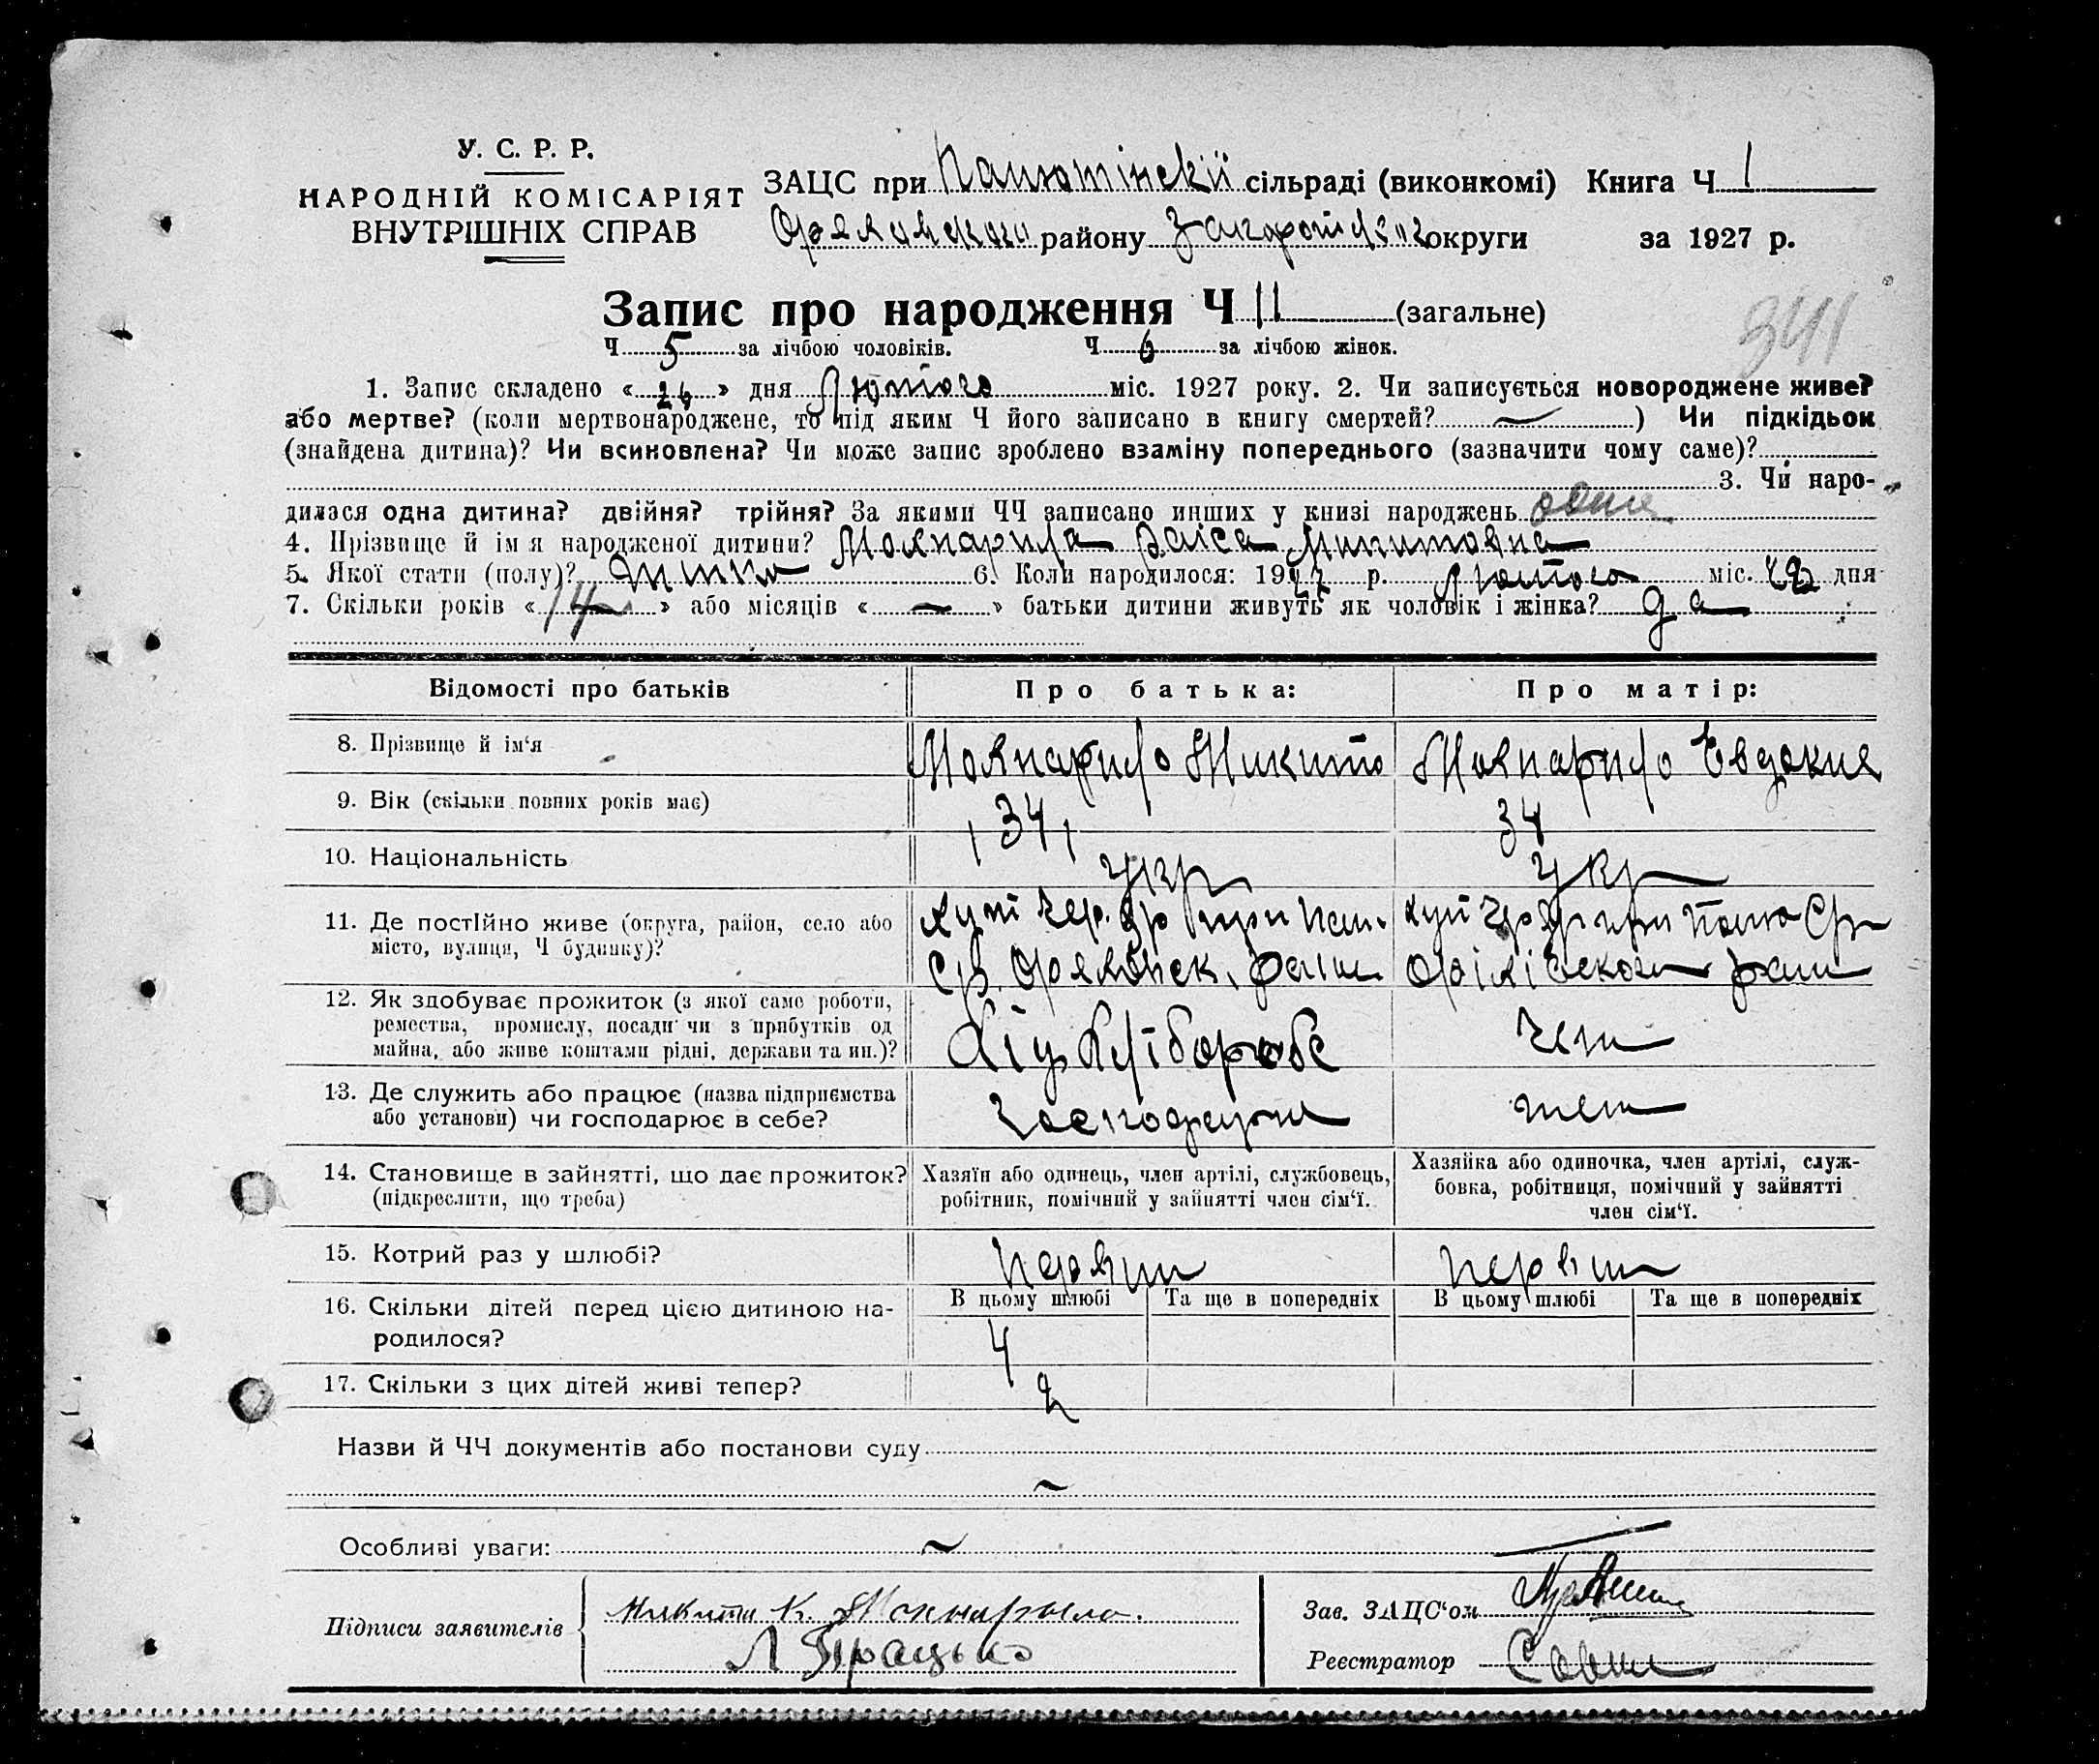 У. С. Р. Р.
НАРОДНІЙ КОМІСАРІЯТ
ВНУТРІШНІХ СПРАВ
ЗАЦС при Панютінскій сільраді (виконкомі) Книга Ч 1
району округи за 1927 р.
Запис про народження Ч 11 (загальне)
341
Ч 5 за лічбою чоловіків. Ч 6 за лічбою жінок.
1. Запис складено «26» дня Лютого міс. 1927 року. 2. Чи записується новороджене живе?
або мертве? (коли мертвонароджене, то під яким Ч його записано в книгу смертей? ) Чи підкідьок
(знайдена дитина)? Чи всиновлена? Чи може запис зроблено взаміну попереднього (зазначити чому саме)?
3. Чи наро-
дилася одна дитина? двійня? трійня? За якими ЧЧ записано инших у книзі народжень одна
4. Прізвище й імя народженої дитини? Мокнарила Раіса Микитовна
5. Якої стати (полу)? 6. Коли народилося: 1927 р. Лютого міс. дня
7. Скільки років «14» або місяців « — » батьки дитини живуть як чоловік і жінка? да
Відомості про батьків Про батька: Про матір:
8. Прізвище й ім'я Мокнарило Микита Мокнарило Евдокия
9. Вік (скільки повних років має) 34 34
10. Національність укр укр
11. Де постІйно живе (округа, район, село або
місто, вулиця, Ч будинку)?
12. Як здобуває прожиток (з якої саме роботи,
ремества, промислу, посади чи з прибутків од
майна, або живе коштами рідні, держави та ин.)? Хліборобс
13. Де служить або працює (назва підприємства
або установи) чи господарює в себе?
14. Становище в зайнятті, що дає прожиток?
(підкреслити, що треба)
Хазяїн або одинець, член артілі, службовець,
робітник, помічний у зайнятті член сім'ї.
Хазяйка або одиночка, член артілі, служ-
бовка, робітниця, помічний у зайнятті
член сім'ї.
15. Котрий раз у шлюбі? первий первий
16. Скільки дітей перед цією дитиною на-
родилося?
В цьому шлюбі Та ще в попередніх В цьому шлюбі Та ще в попередніх
4
17. Скільки з цих дітей живі тепер? 2
Назви й ЧЧ документів або постанови суду
Особливі уваги:
Підписи заявителів Микита К. Мокнарыло.
Л Працько
Зав. ЗАЦС'ом
Реєстратор